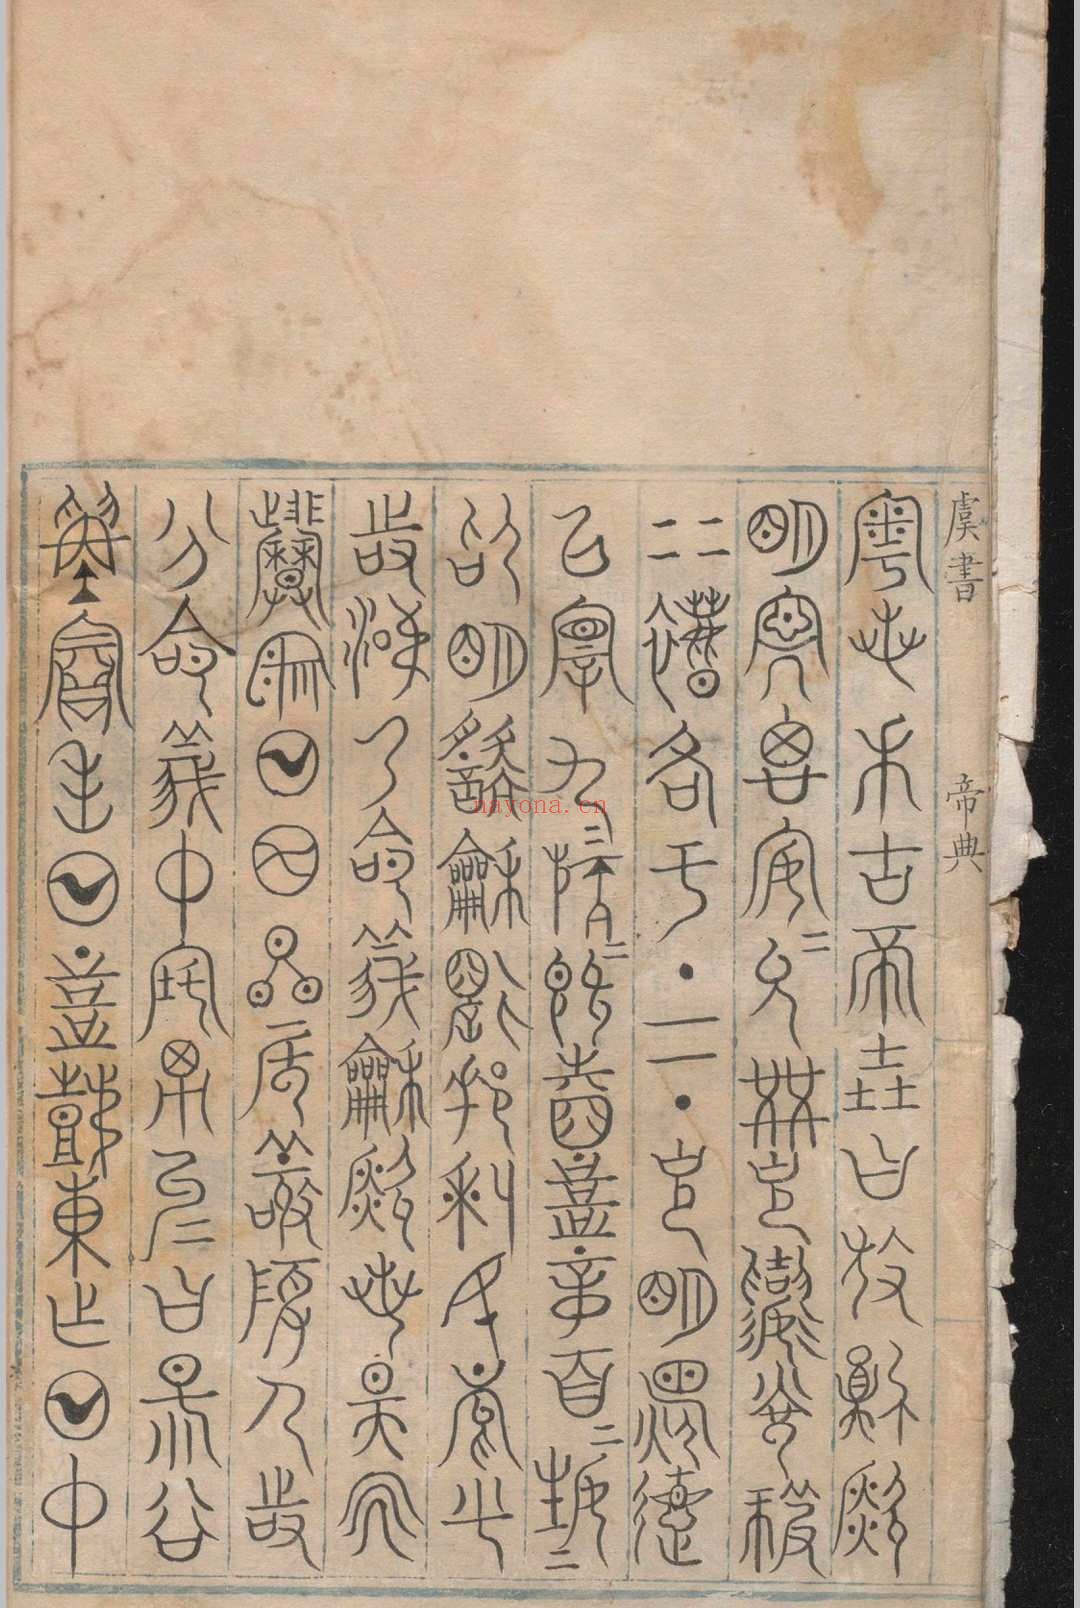 虞書 帝典
粵若稽古帝堯曰放勳欽
明文思安二允恭克讓光被
四表格于上下克明俊德
以親九族二既睦平章百二姓二
昭明協龢萬邦黎民於變
時雍乃命羲龢欽若昊天
曆象日月星辰敬授人時
分命羲中宅嵎夷曰暘谷
寅賓出日平秩東作日中
nayona.cn